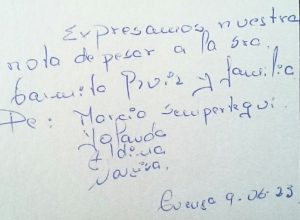 Expresamos nuestra
nota de pesar a la sra.
Carmita Ruiz y familia
De: Marcio Sempertegui.
Yolanda
Eldina
Narcisa.
Cuenca 9.06.23